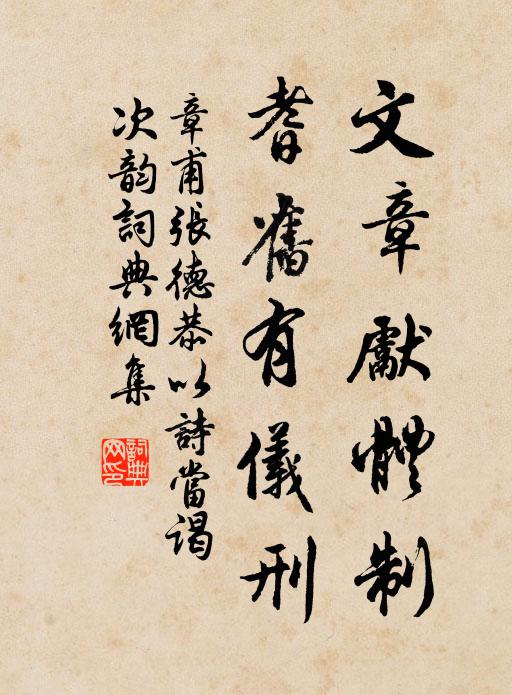 文章獻體制
耆舊有儀刑
章甫張德恭以詩當謁
次韵詞典網集
詞典
网印